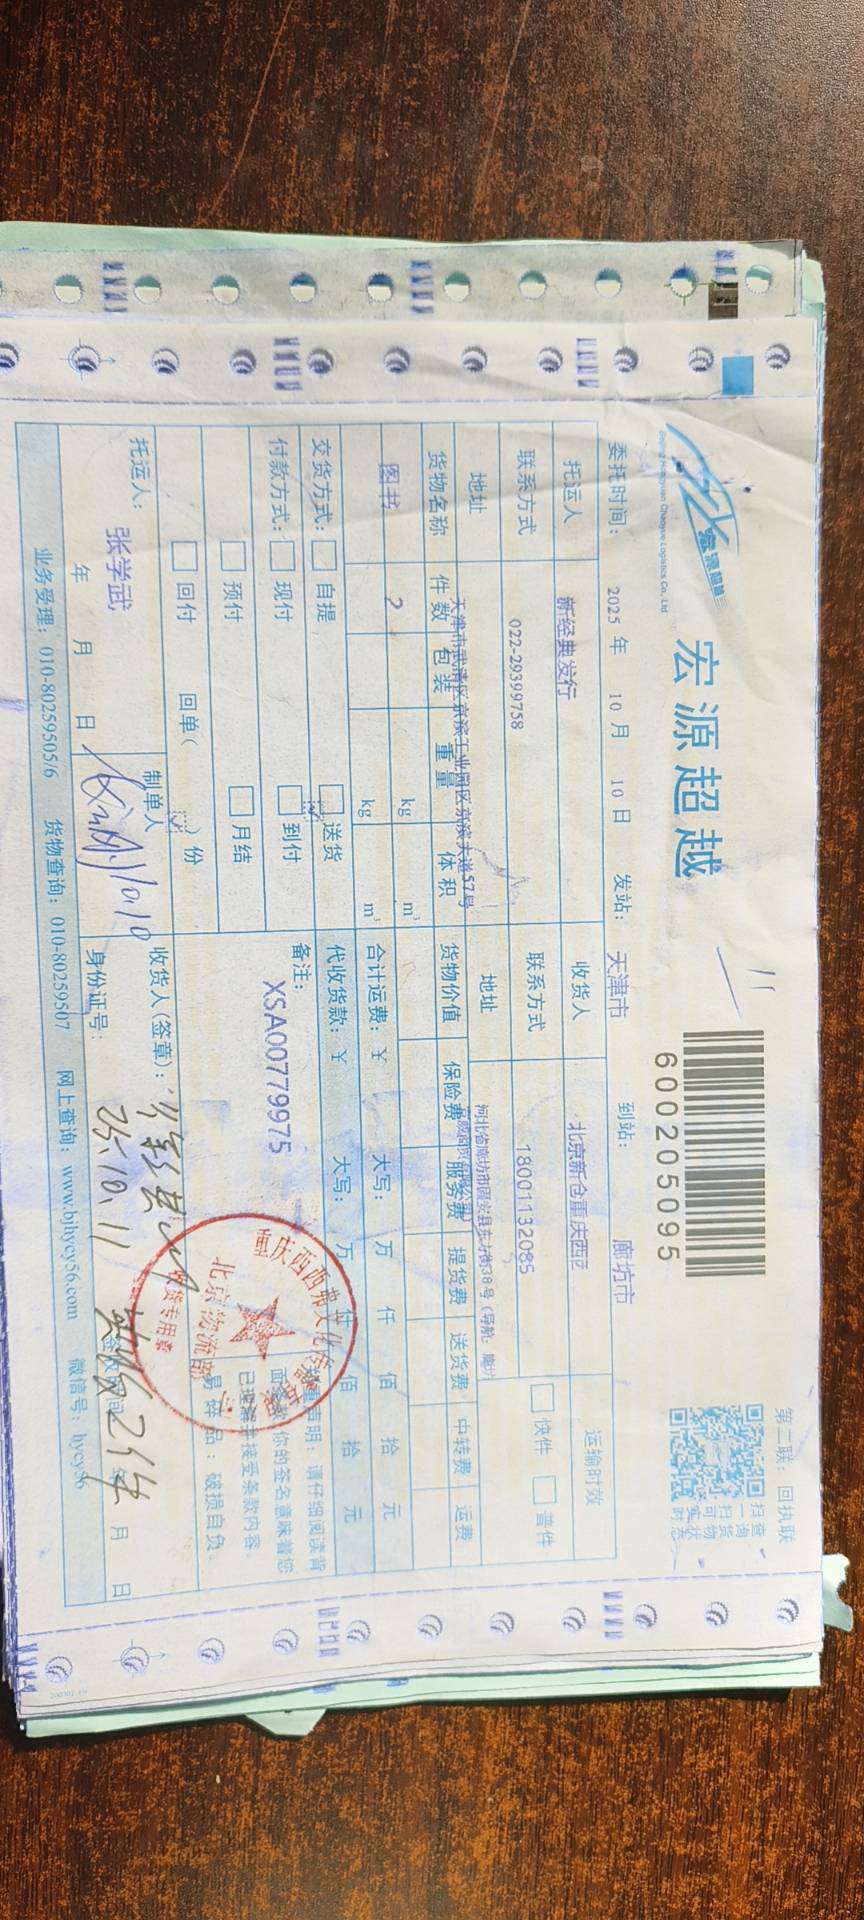 宏源超越
Beijing Hongyuan Chaoyue Logistics Co., Ltd
宏源超越
6000205095
第二联：回执联
扫查
一询
扫货
可物
实状
时态
委托时间： 2025 年 10 月 10 日 发站： 天津市 到站： 廊坊市
托运人 新经典发行 收货人 北京新仓重庆西 运输时效
联系方式 022-29399758 联系方式 18001132085 快件 普件
地址 天津市武清区京滨工业园区京滨大道57号 地址 河北省廊坊市固安县东方街38号（导航：
货物名称 件数 包装 重量 体积 货物价值 保险费 服务费 提货费 送货费 中转费 运费
图书 2 kg m³
kg m³ 合计运费：￥ 大写： 万 仟 佰 拾 元
交货方式： 自提 送货 代收货款：￥ 大写： 万 仟 佰 拾 元
付款方式： 现付 到付 备注：
预付 月结 XSA00779975
回付 回单（ ）份
郑重声明：请仔细阅读背
面条款，你的签名意味着您
已理解并接受条款内容。
易碎品：破损自负。
托运人： 张学武 制单人 10.10 收货人（签章）：
年 月 日 身份证号： 25.10.11 实收2件 年 月 日
重庆西西弗文化传播
北京物流部
收货专用章
业务受理：010-80259505/6 货物查询：010-80259507 网上查询：www.bjhycy56.com 微信号：hycy56